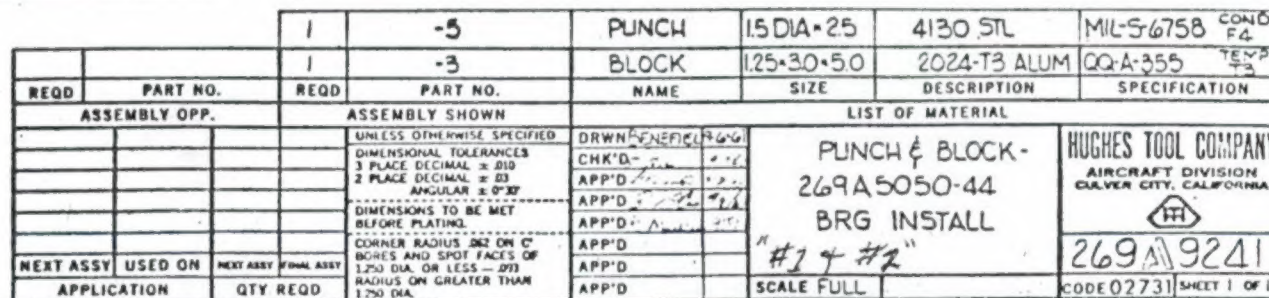 1 -5 PUNCH 1.5 DIA × 2.5 4130 STL MIL-S-6758 COND F4
1 -3 BLOCK 1.25×3.0×5.0 2024-T3 ALUM QQ-A-355 TEMP T3
REQD PART NO. REQD PART NO. NAME SIZE DESCRIPTION SPECIFICATION
ASSEMBLY OPP. ASSEMBLY SHOWN LIST OF MATERIAL
UNLESS OTHERWISE SPECIFIED
DIMENSIONAL TOLERANCES
3 PLACE DECIMAL ± .010
2 PLACE DECIMAL ± .03
ANGULAR ± 0°30'
DIMENSIONS TO BE MET
BEFORE PLATING.
CORNER RADIUS .062 ON C'
BORES AND SPOT FACES OF
1.250 DIA. OR LESS — .093
RADIUS ON GREATER THAN
1.250 DIA.
DRWN BENEFIEL
CHK'D
APP'D
APP'D
APP'D
APP'D
APP'D
APP'D
PUNCH & BLOCK-
269A5050-44
BRG INSTALL
"#1 & #2"
SCALE FULL
HUGHES TOOL COMPANY
AIRCRAFT DIVISION
CULVER CITY, CALIFORNIA
269A9241
CODE 02731 SHEET 1 OF
NEXT ASSY USED ON NEXT ASSY FINAL ASSY
APPLICATION QTY REQD